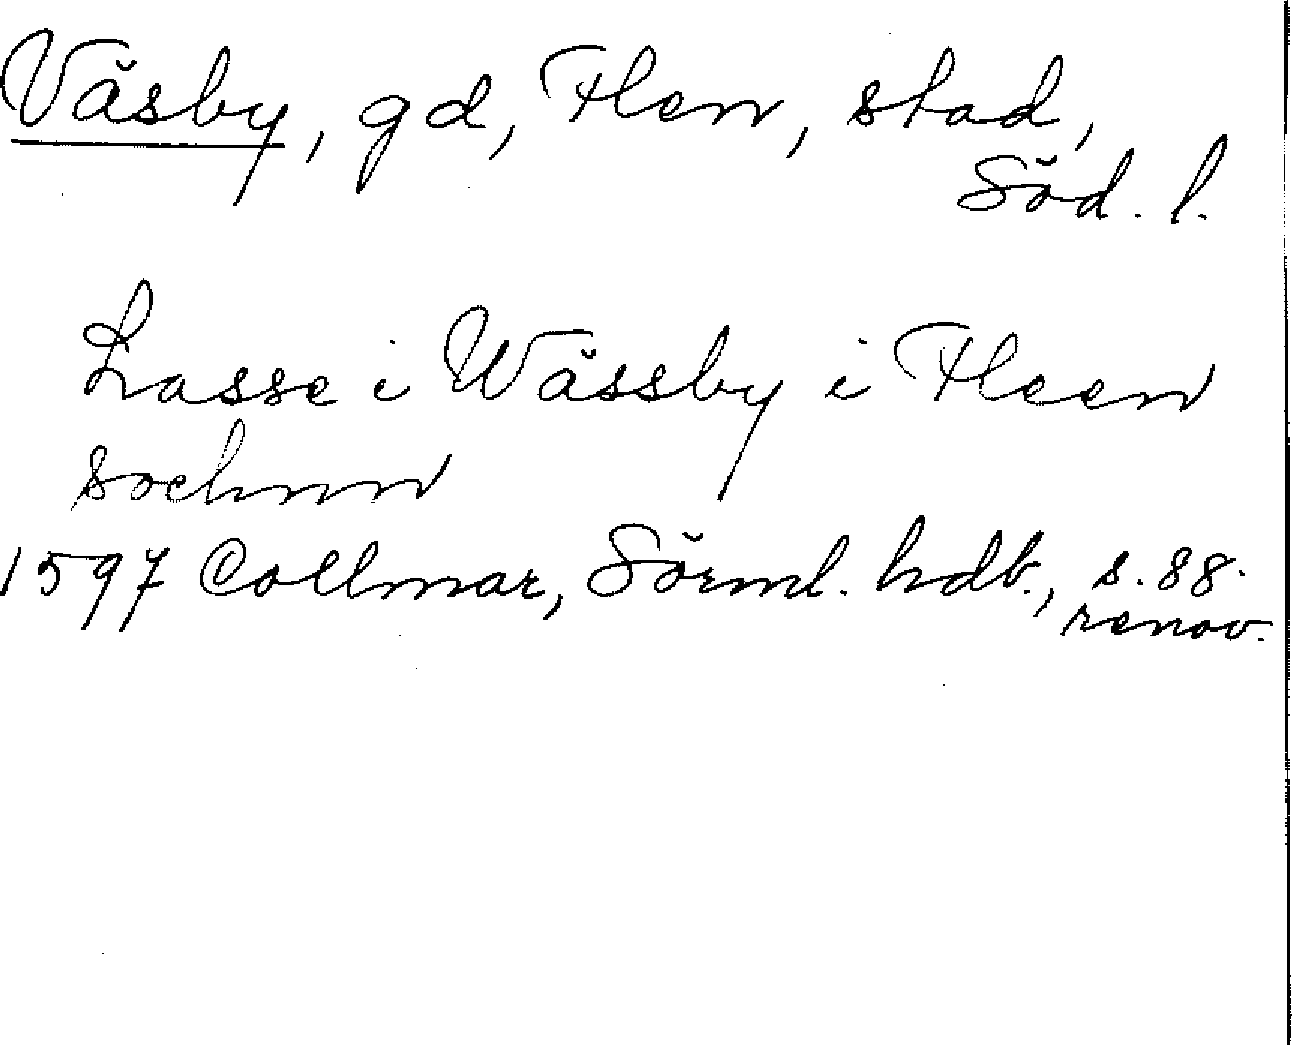 Väsby, gd, Flen, stad,
Söd. l.
Lasse i Wässby i Fleen
sochnn
1597 Collmar, Sörml. hdb., s. 88.
renov.